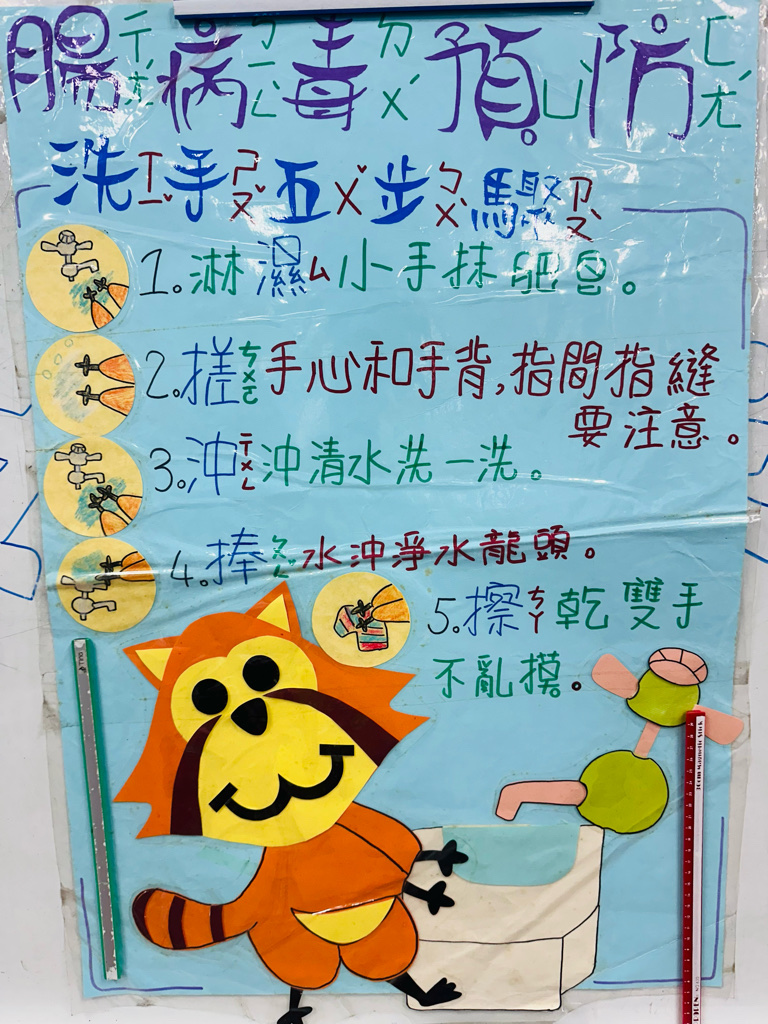 腸ㄔㄤˊ病ㄅㄧㄥˋ毒ㄉㄨˊ預ㄩˋ防ㄈㄤˊ
洗ㄒㄧˇ手ㄕㄡˇ五ㄨˇ步ㄅㄨˋ驟ㄗㄡˋ
1。淋濕ㄕ小手抹肥皂。
2.搓ㄘㄨㄛ手心和手背,指間指縫
要注意。
3.沖ㄔㄨㄥ沖清水洗一洗。
4.捧ㄆㄥˇ水沖淨水龍頭。
5.擦ㄘㄚ乾雙手
不亂摸。